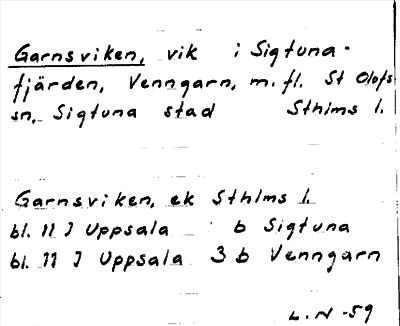 Garnsviken, vik i Sigtuna-
fjärden, Venngarn, m.fl. St Olofs
sn, Sigtuna stad Sthlms l.
Garnsviken, ek Sthlms l.
bl. 11 I Uppsala b Sigtuna
bl. 11 I Uppsala 3 b Venngarn
L.N -59